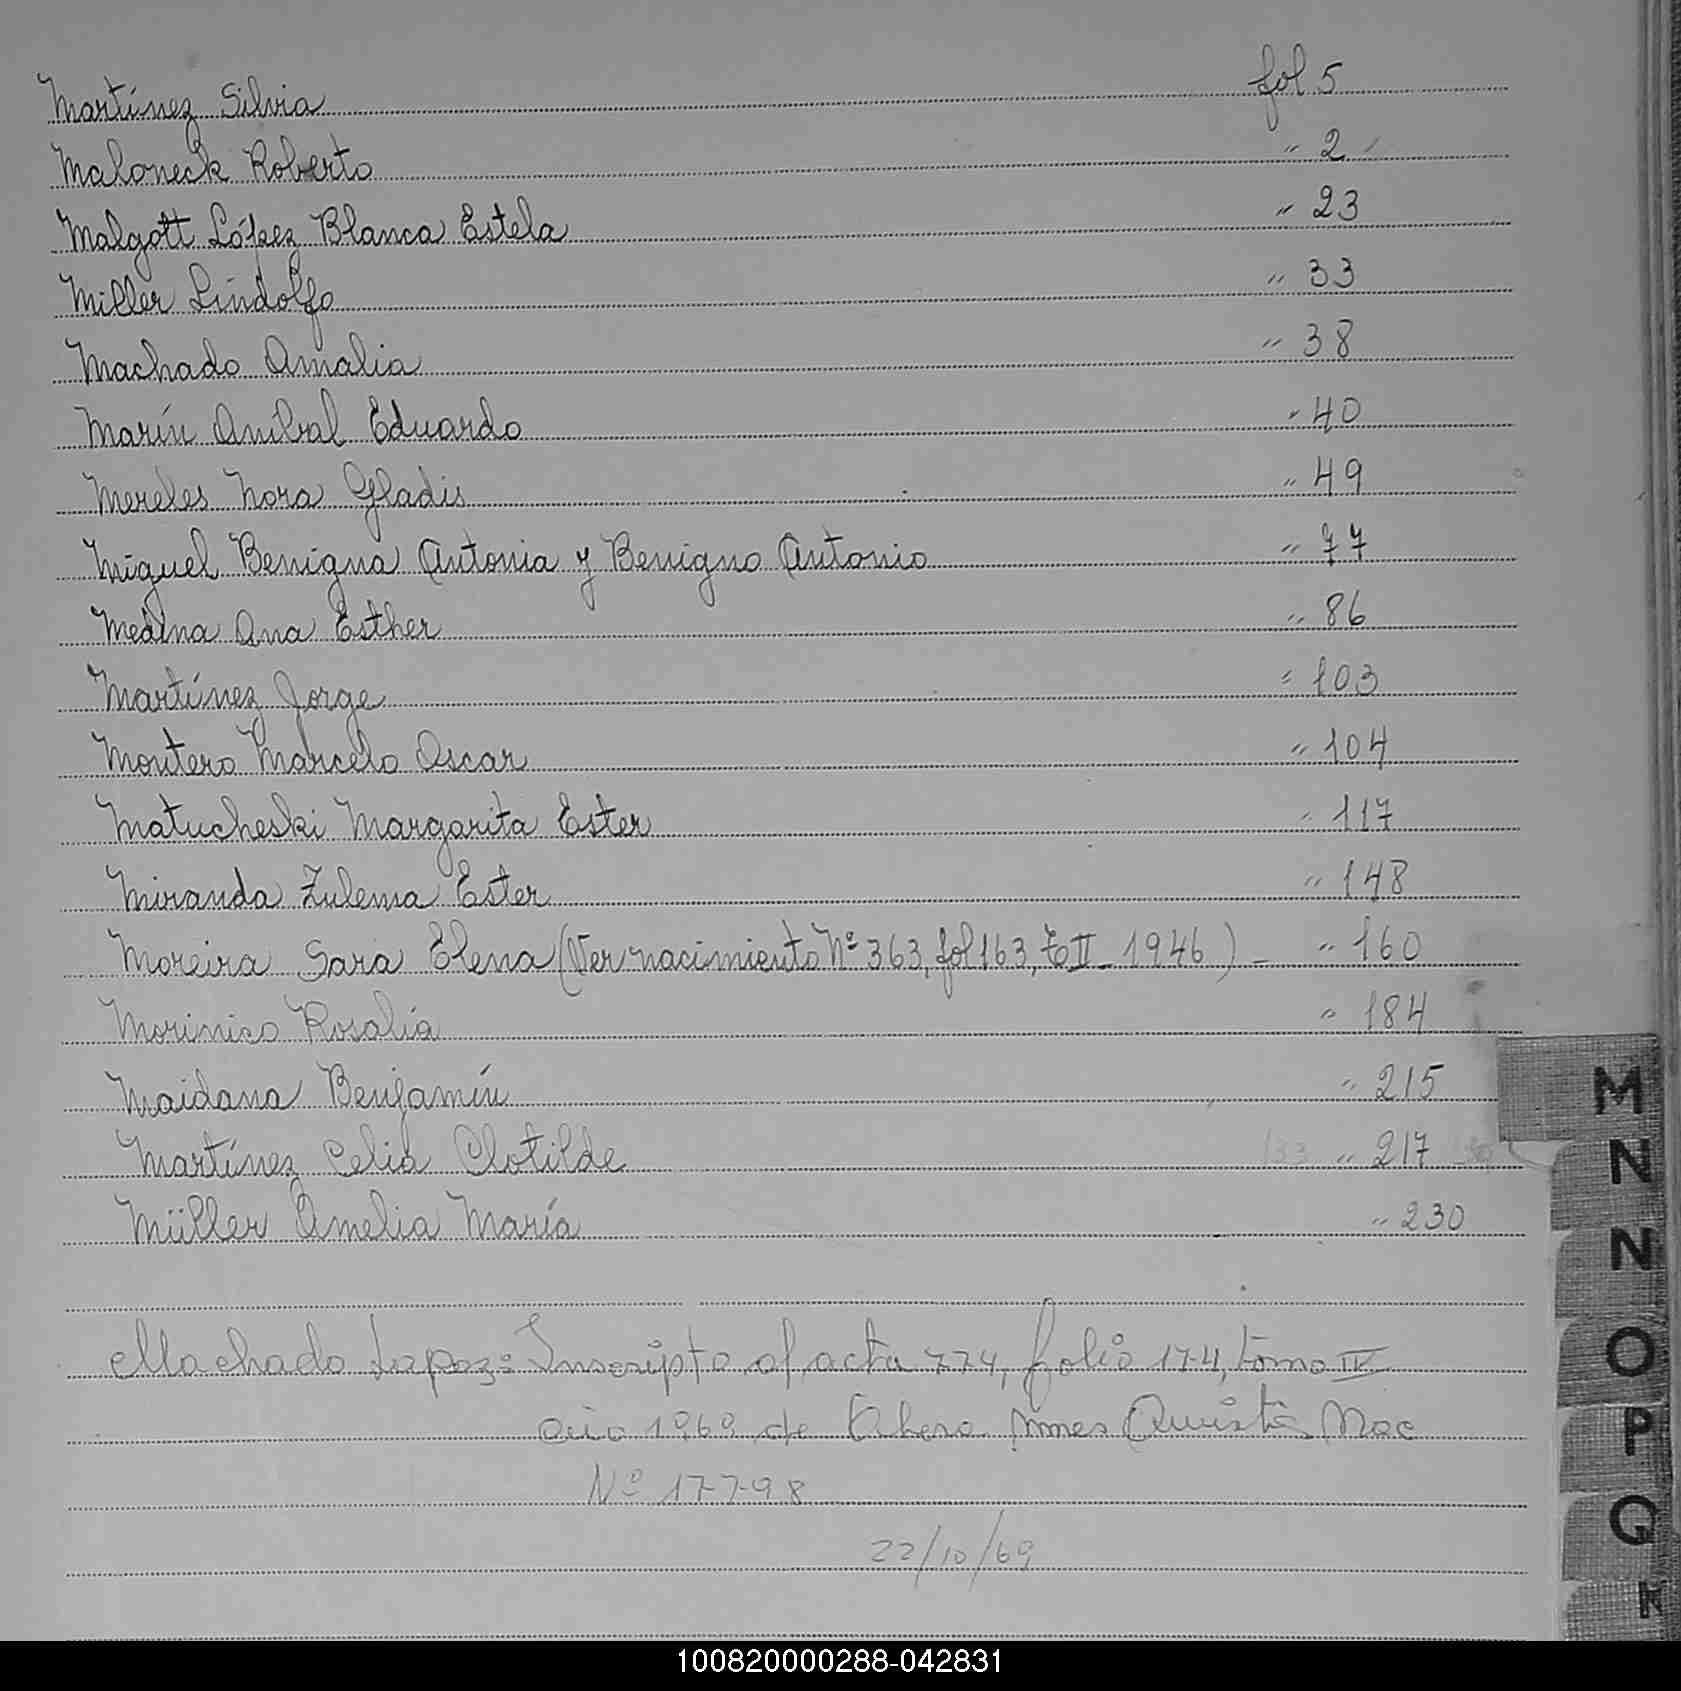 Martínez Silvia fol 5
Maloneck Roberto " 2
Malgott López Blanca Estela " 23
Miller Lindolfo " 33
Machado Amalia " 38
Marín Aníbal Eduardo " 40
Mereles Nora Gladis " 49
Miguel Benigna Antonia y Benigno Antonio " 77
Medina Ana Esther " 86
Martínez Jorge " 103
Montero Marcelo Oscar " 104
Matucheski Margarita Ester " 117
Miranda Zulema Ester " 148
Moreira Sara Elena (Ver nacimiento Nº 363, fol 163, to II - 1946) - " 160
Morinico Rosalía " 184
Maidana Benjamín " 215
Martínez Celia Clotilde 133 " 217
Müller Amelia María " 230
Machado Lopez: Inscripto al acta 774, folio 174, tomo IV
año 1969 de
Nº 17798
22/10/69
M
N
N
O
P
Q
R
100820000288-042831